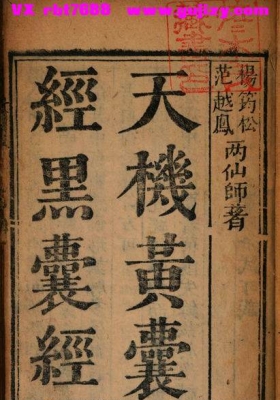 VX rbt7688 www.gujizy.com
楊筠松
范越鳳
两仙師著
天機黃囊
經黑囊經